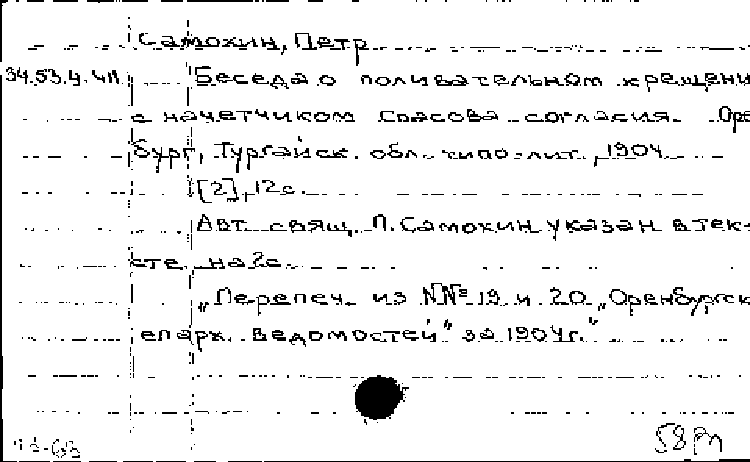 Самохин, Петр
34.53.4.411 Беседа о поливательном крещени
с начетчиком Спасова согласия. Оре
бург, Тургайск. обл. типо-лит., 1904.
[2], 12с.
Авт. свящ. П. Самохин указан в тек-
сте на 2с.
„Перепеч. из NN° 19 и 20 „Оренбургск
епарх. ведомостей" за 1904г."